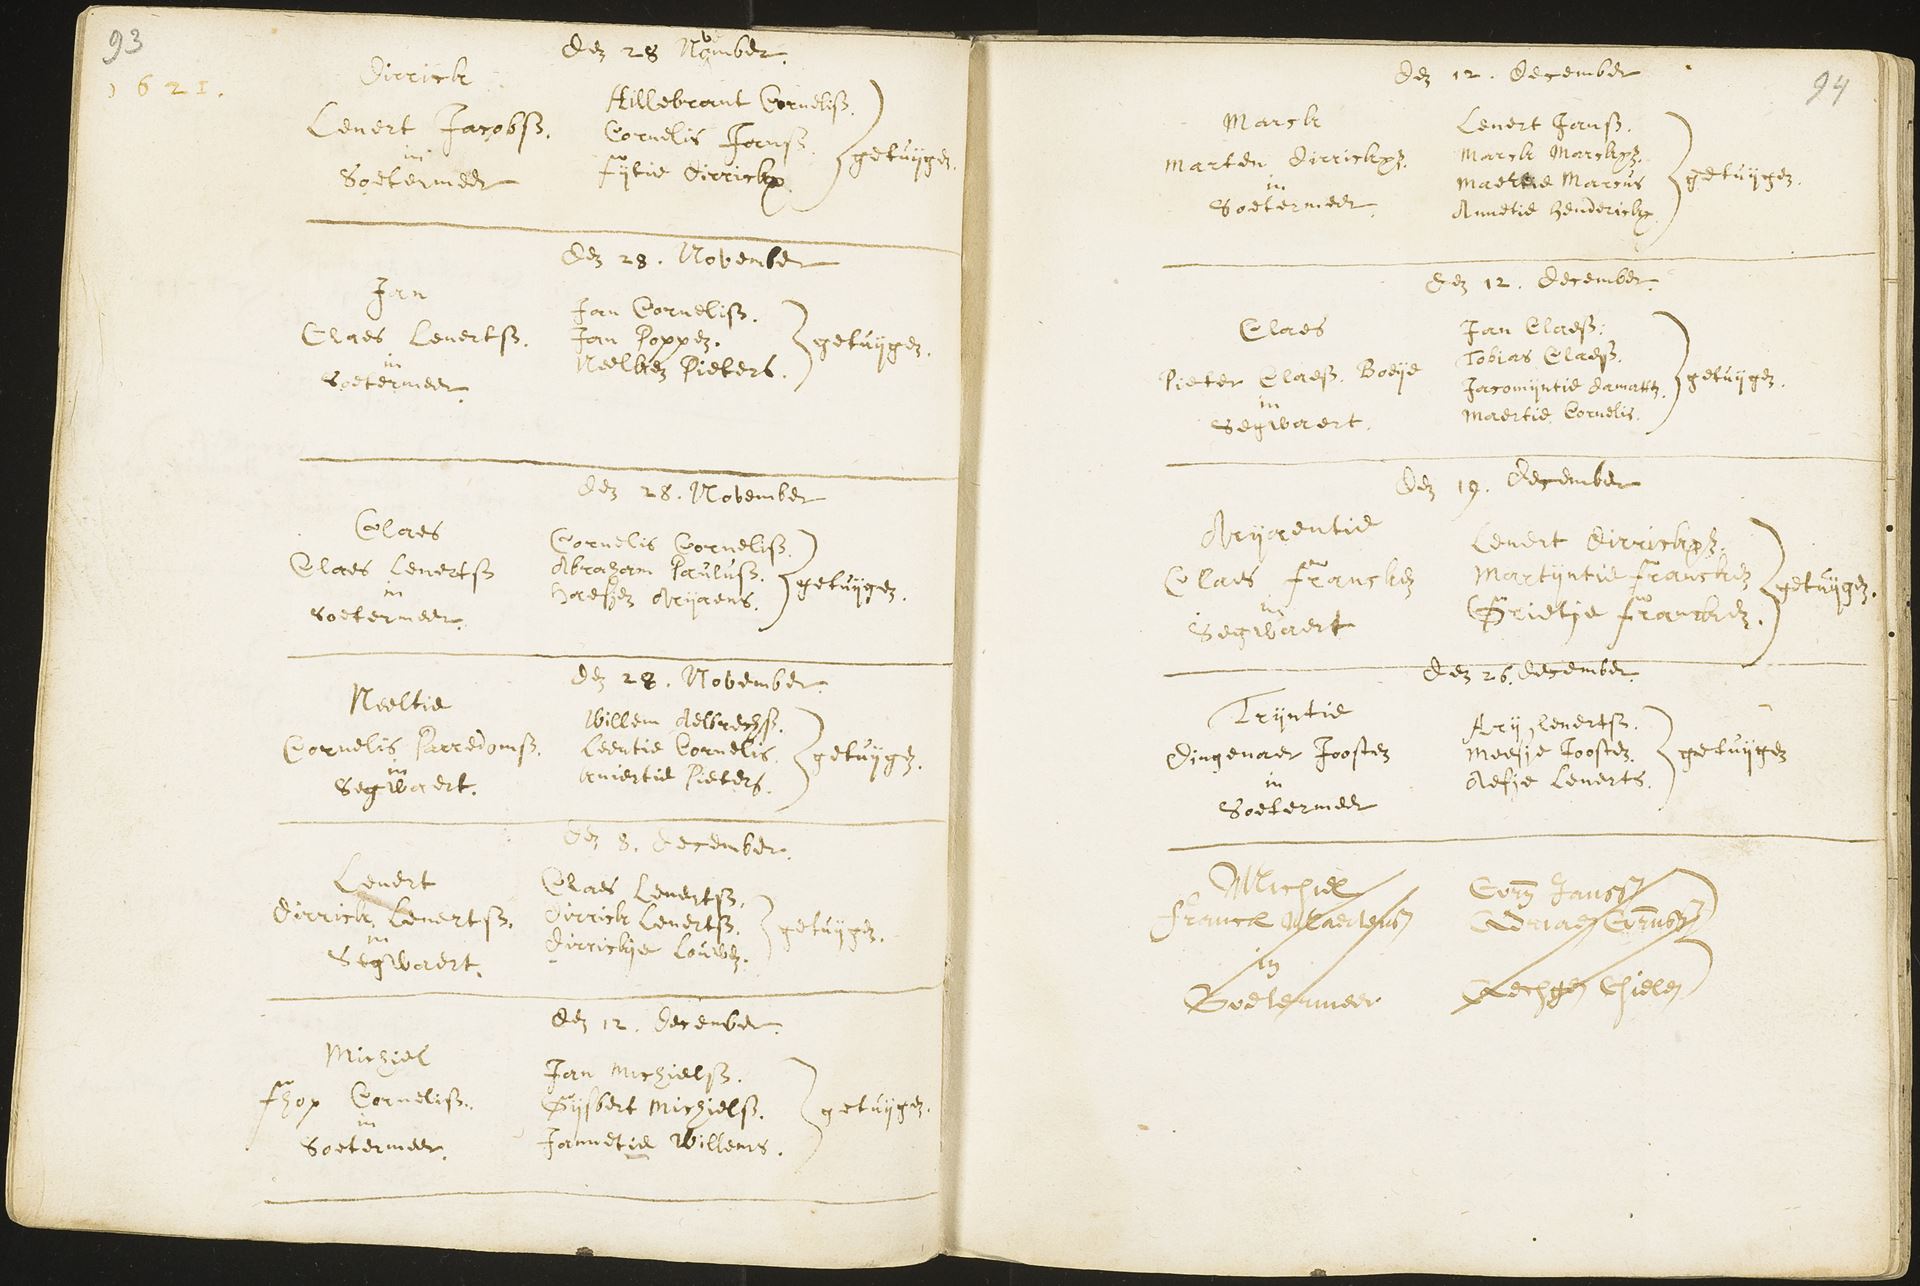 93
1621.
den 28 November.
Dirrick
Lenert Jacobsz.
in
Soetermeer
Hillebrant Cornelisz.
Cornelis Jansz.
fijtie Dirrickx.
getuijgen.
den 28. November
Jan
Claes Lenertsz.
in
Soetermeer.
Jan Cornelisz.
Jan Poppen.
Neeltien Pieters.
getuijgen.
den 28. November
Claes
Claes Lenertsz
in
Soetermeer.
Cornelis Cornelisz.
Abraham Paulusz.
Haesjen Arijaens.
getuijgen.
den 28. November.
Neeltie
Cornelis Parredomsz.
in
Segwaert.
Willem Aelbrechsz.
Leentie Cornelis.
Pieters.
getuijgen.
den 8. december.
Lenert
Dirrick Lenertsz.
in
Segwaert.
Claes Lenertsz.
Dirrick Lenertsz.
Dirrickije Louwen.
getuijgen.
den 12. december.
Michiel
Cornelisz.
in
Soetermeer.
Jan Michielsz.
Gijsbert Michielsz.
Jannetie Willems.
getuijgen.
94
den 12. december
Marck
Marten Dirrickxz.
in
Soetermeer.
Lenert Jansz.
Marck Marckxz.
Maertie Marcus
Annetie Henderickx.
getuijgen.
den 12. december.
Claes
Pieter Claesz. Boeije
in
Segwaert.
Jan Claesz.
Tobias Claesz.
Jacomijntie
Maertie Cornelis.
getuijgen.
den 19. december
Arijaentie
Claes francken
in
Segwaert
Lenert Dirrickxz.
Martijntie francken
Grietje francken.
getuijgen.
den 26. december.
Trijntie
Dingenaer Joosten
in
Soetermeer
Arij Lenertsz.
Meesje Joosten.
Aefje Lenerts.
getuijgen
Michiel
Franck Maertensz
in
Soetermeer
Corn Jansz
Adriaen Cornelisz
Chielen